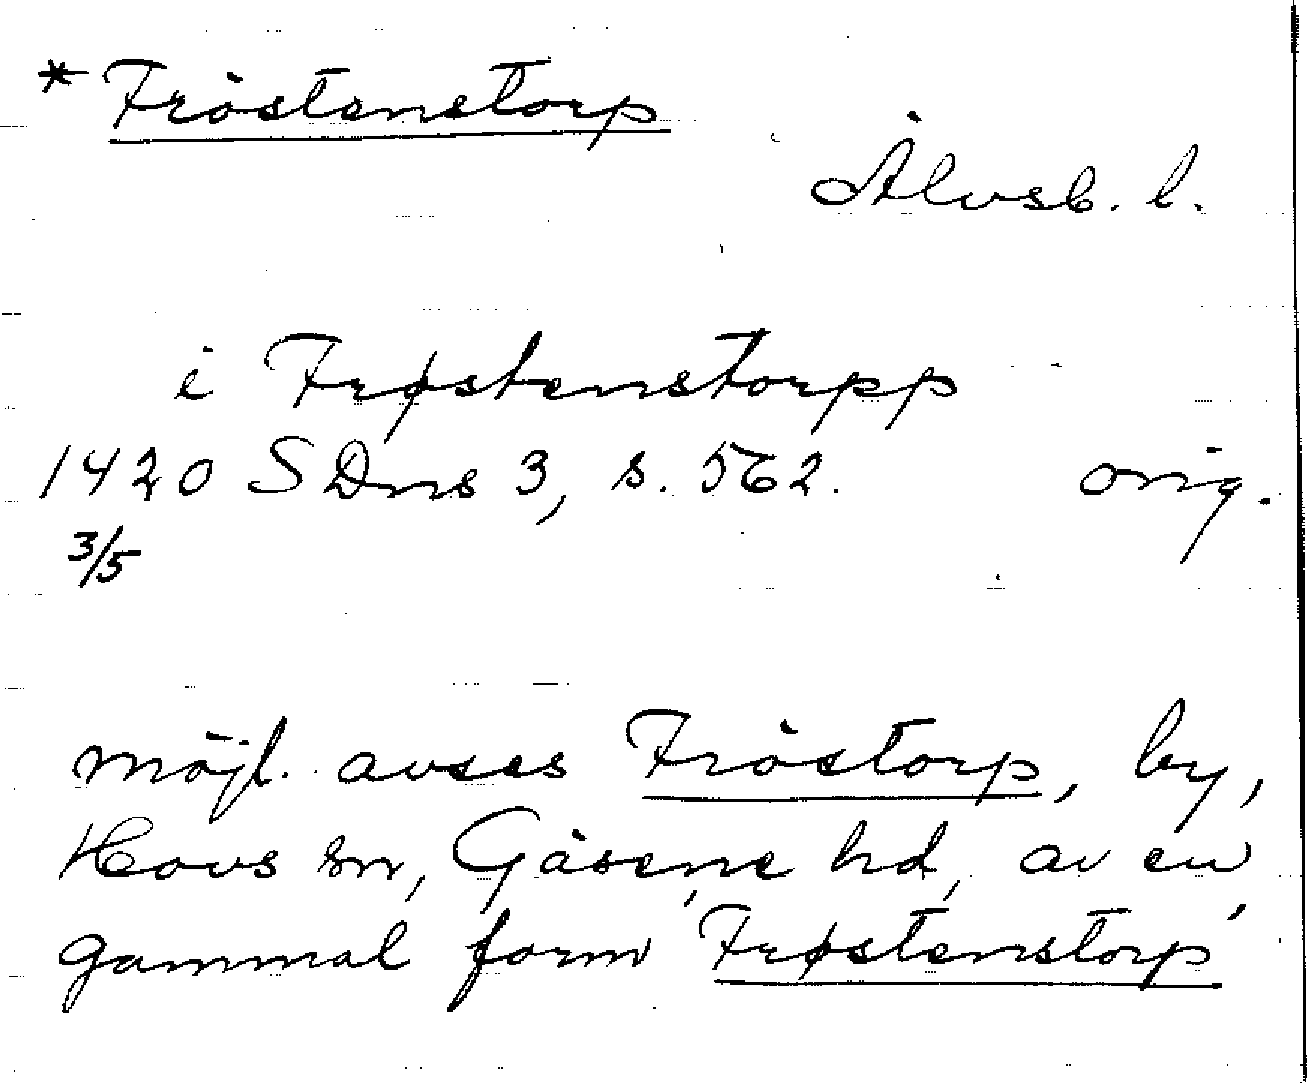 * Fröstenstorp
Älvsb. l.
i Frøstenstorpp
1420 SDns 3, s. 562. orig.
3/5
möjl. avses Fröstorp, by,
Hovs sn, Gäsene hd, av en
gammal form 'Frøstenstorp'